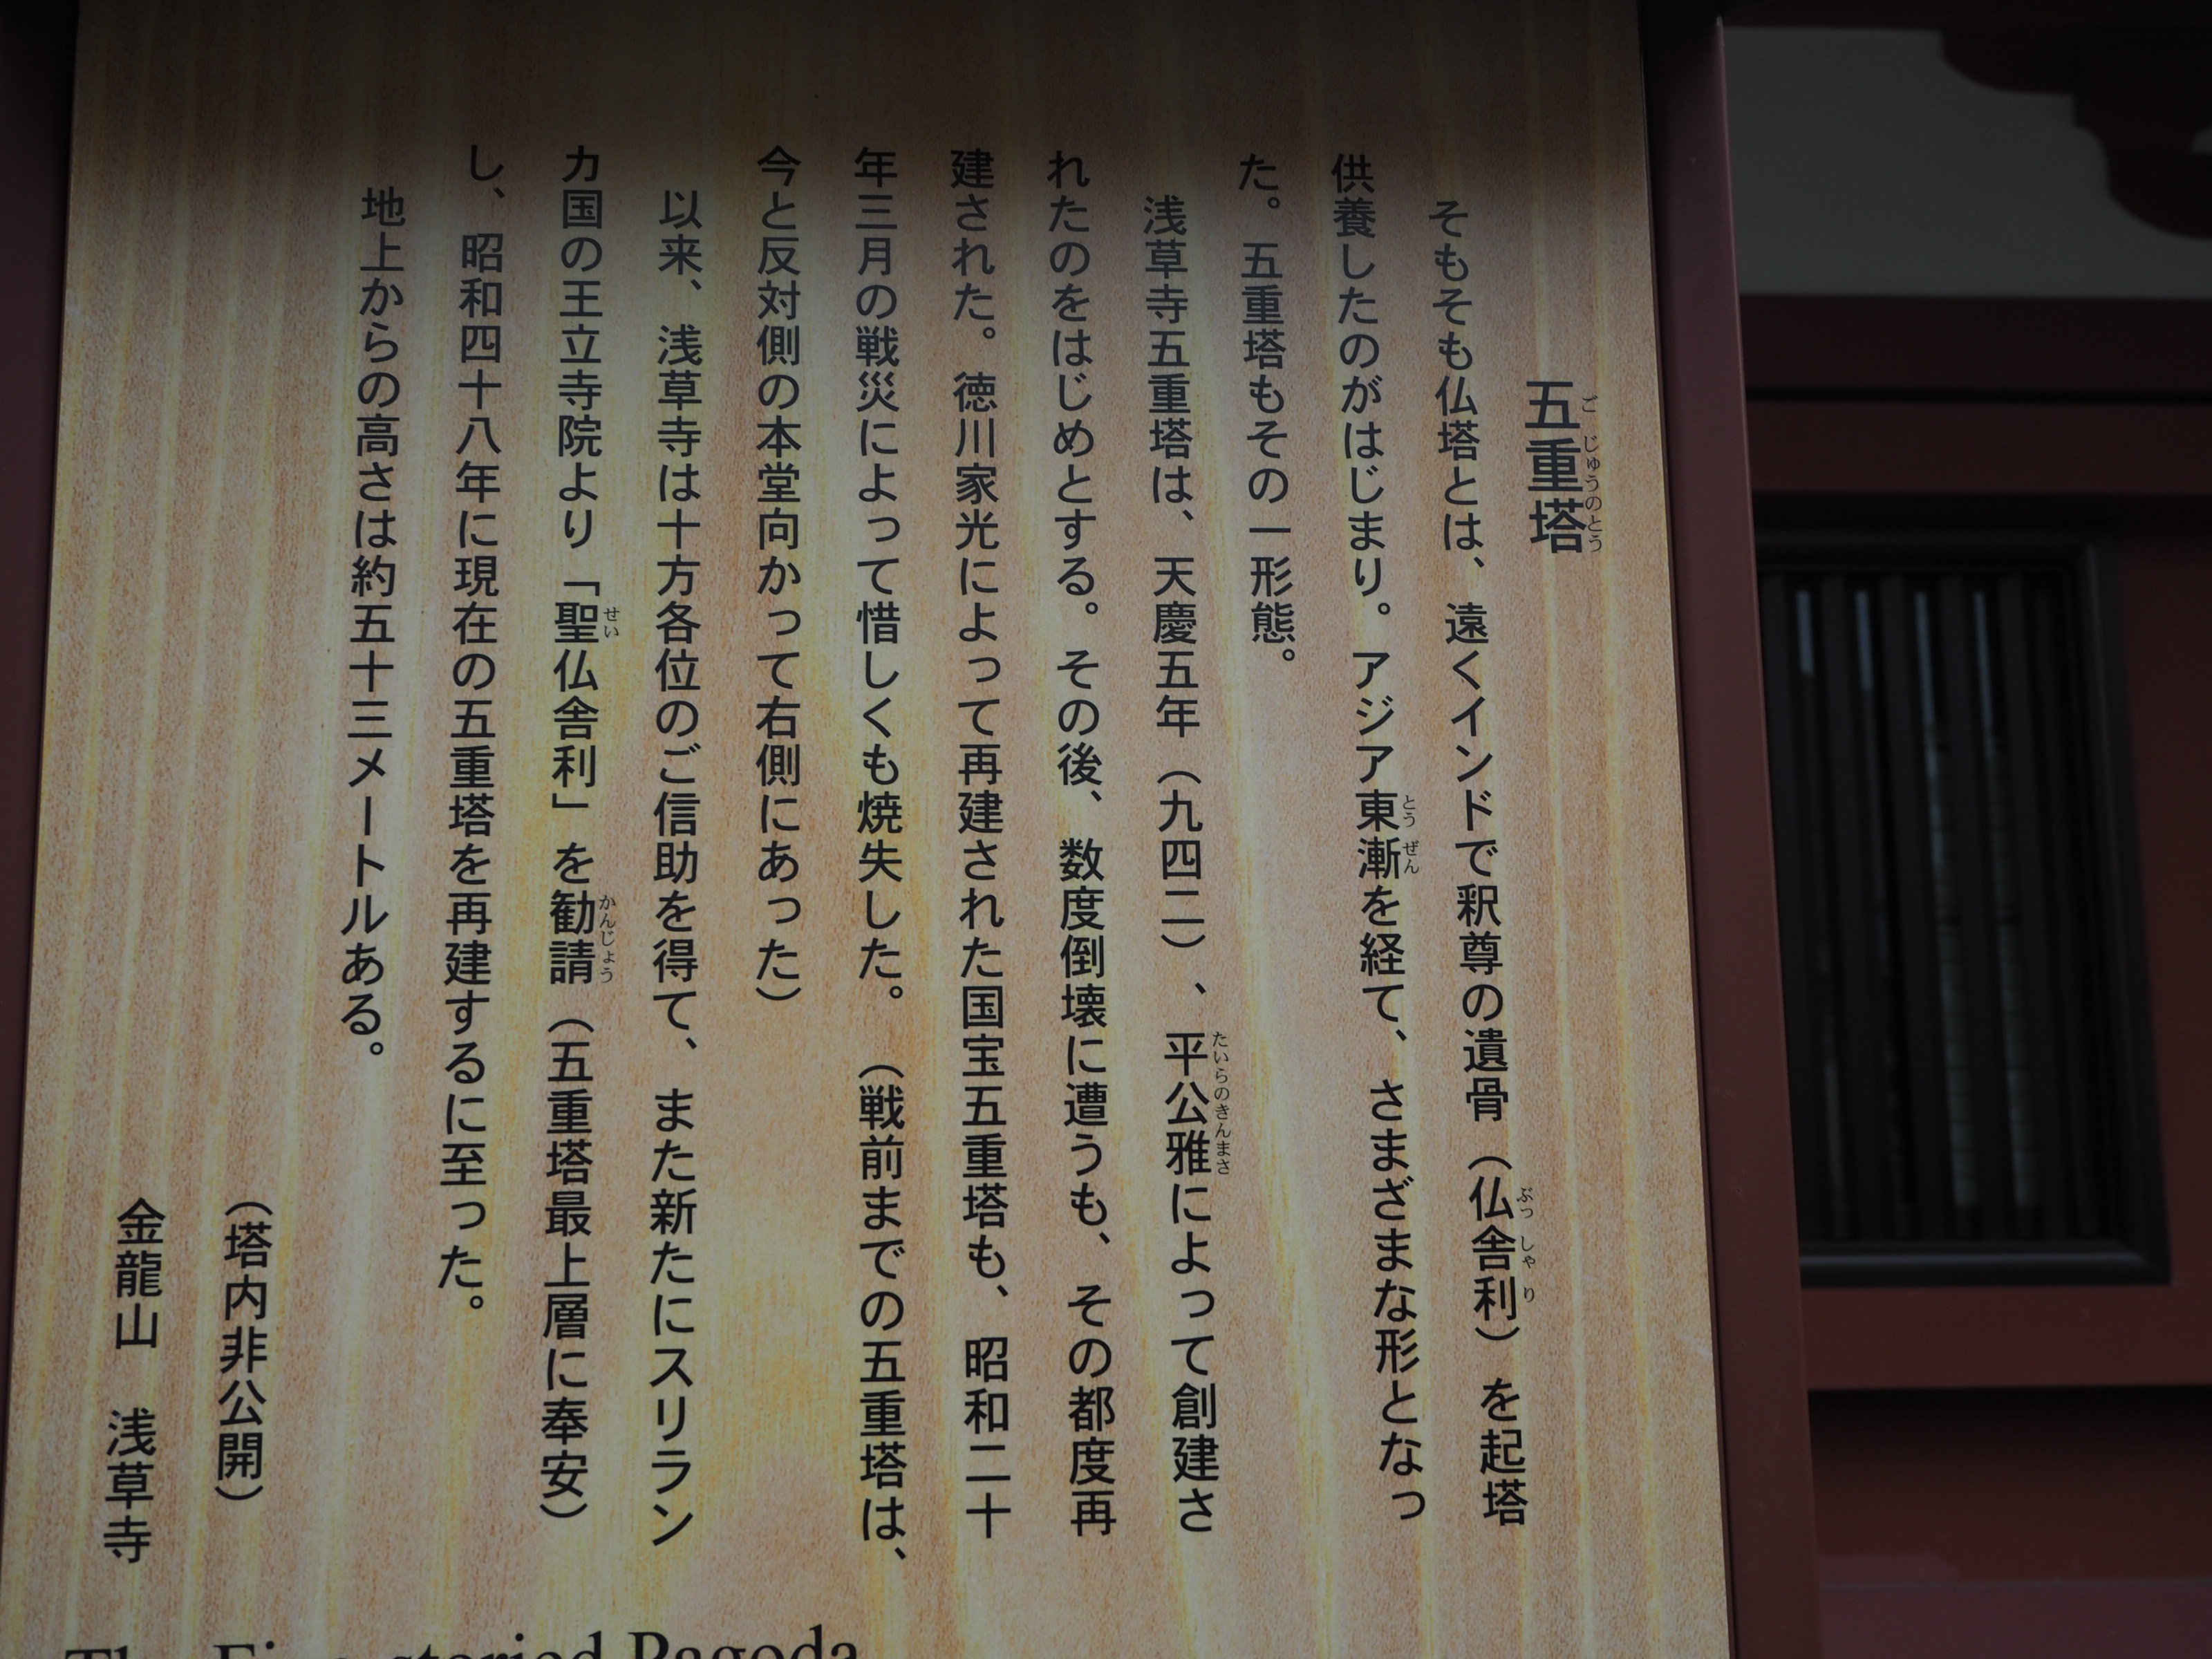 五重塔
そもそも仏塔とは、遠くインドで釈尊の遺骨（仏舎利）を起塔
供養したのがはじまり。アジア東漸を経て、さまざまな形となっ
た。五重塔もその一形態。
浅草寺五重塔は、天慶五年（九四二）、平公雅によって創建さ
れたのをはじめとする。その後、数度倒壊に遭うも、その都度再
建された。徳川家光によって再建された国宝五重塔も、昭和二十
年三月の戦災によって惜しくも焼失した。（戦前までの五重塔は、
今と反対側の本堂向かって右側にあった）
以来、浅草寺は十方各位のご信助を得て、また新たにスリラン
カ国の王立寺院より「聖仏舎利」を勧請（五重塔最上層に奉安）
し、昭和四十八年に現在の五重塔を再建するに至った。
地上からの高さは約五十三メートルある。
（塔内非公開）
金龍山　浅草寺
The Five-storied Pagoda